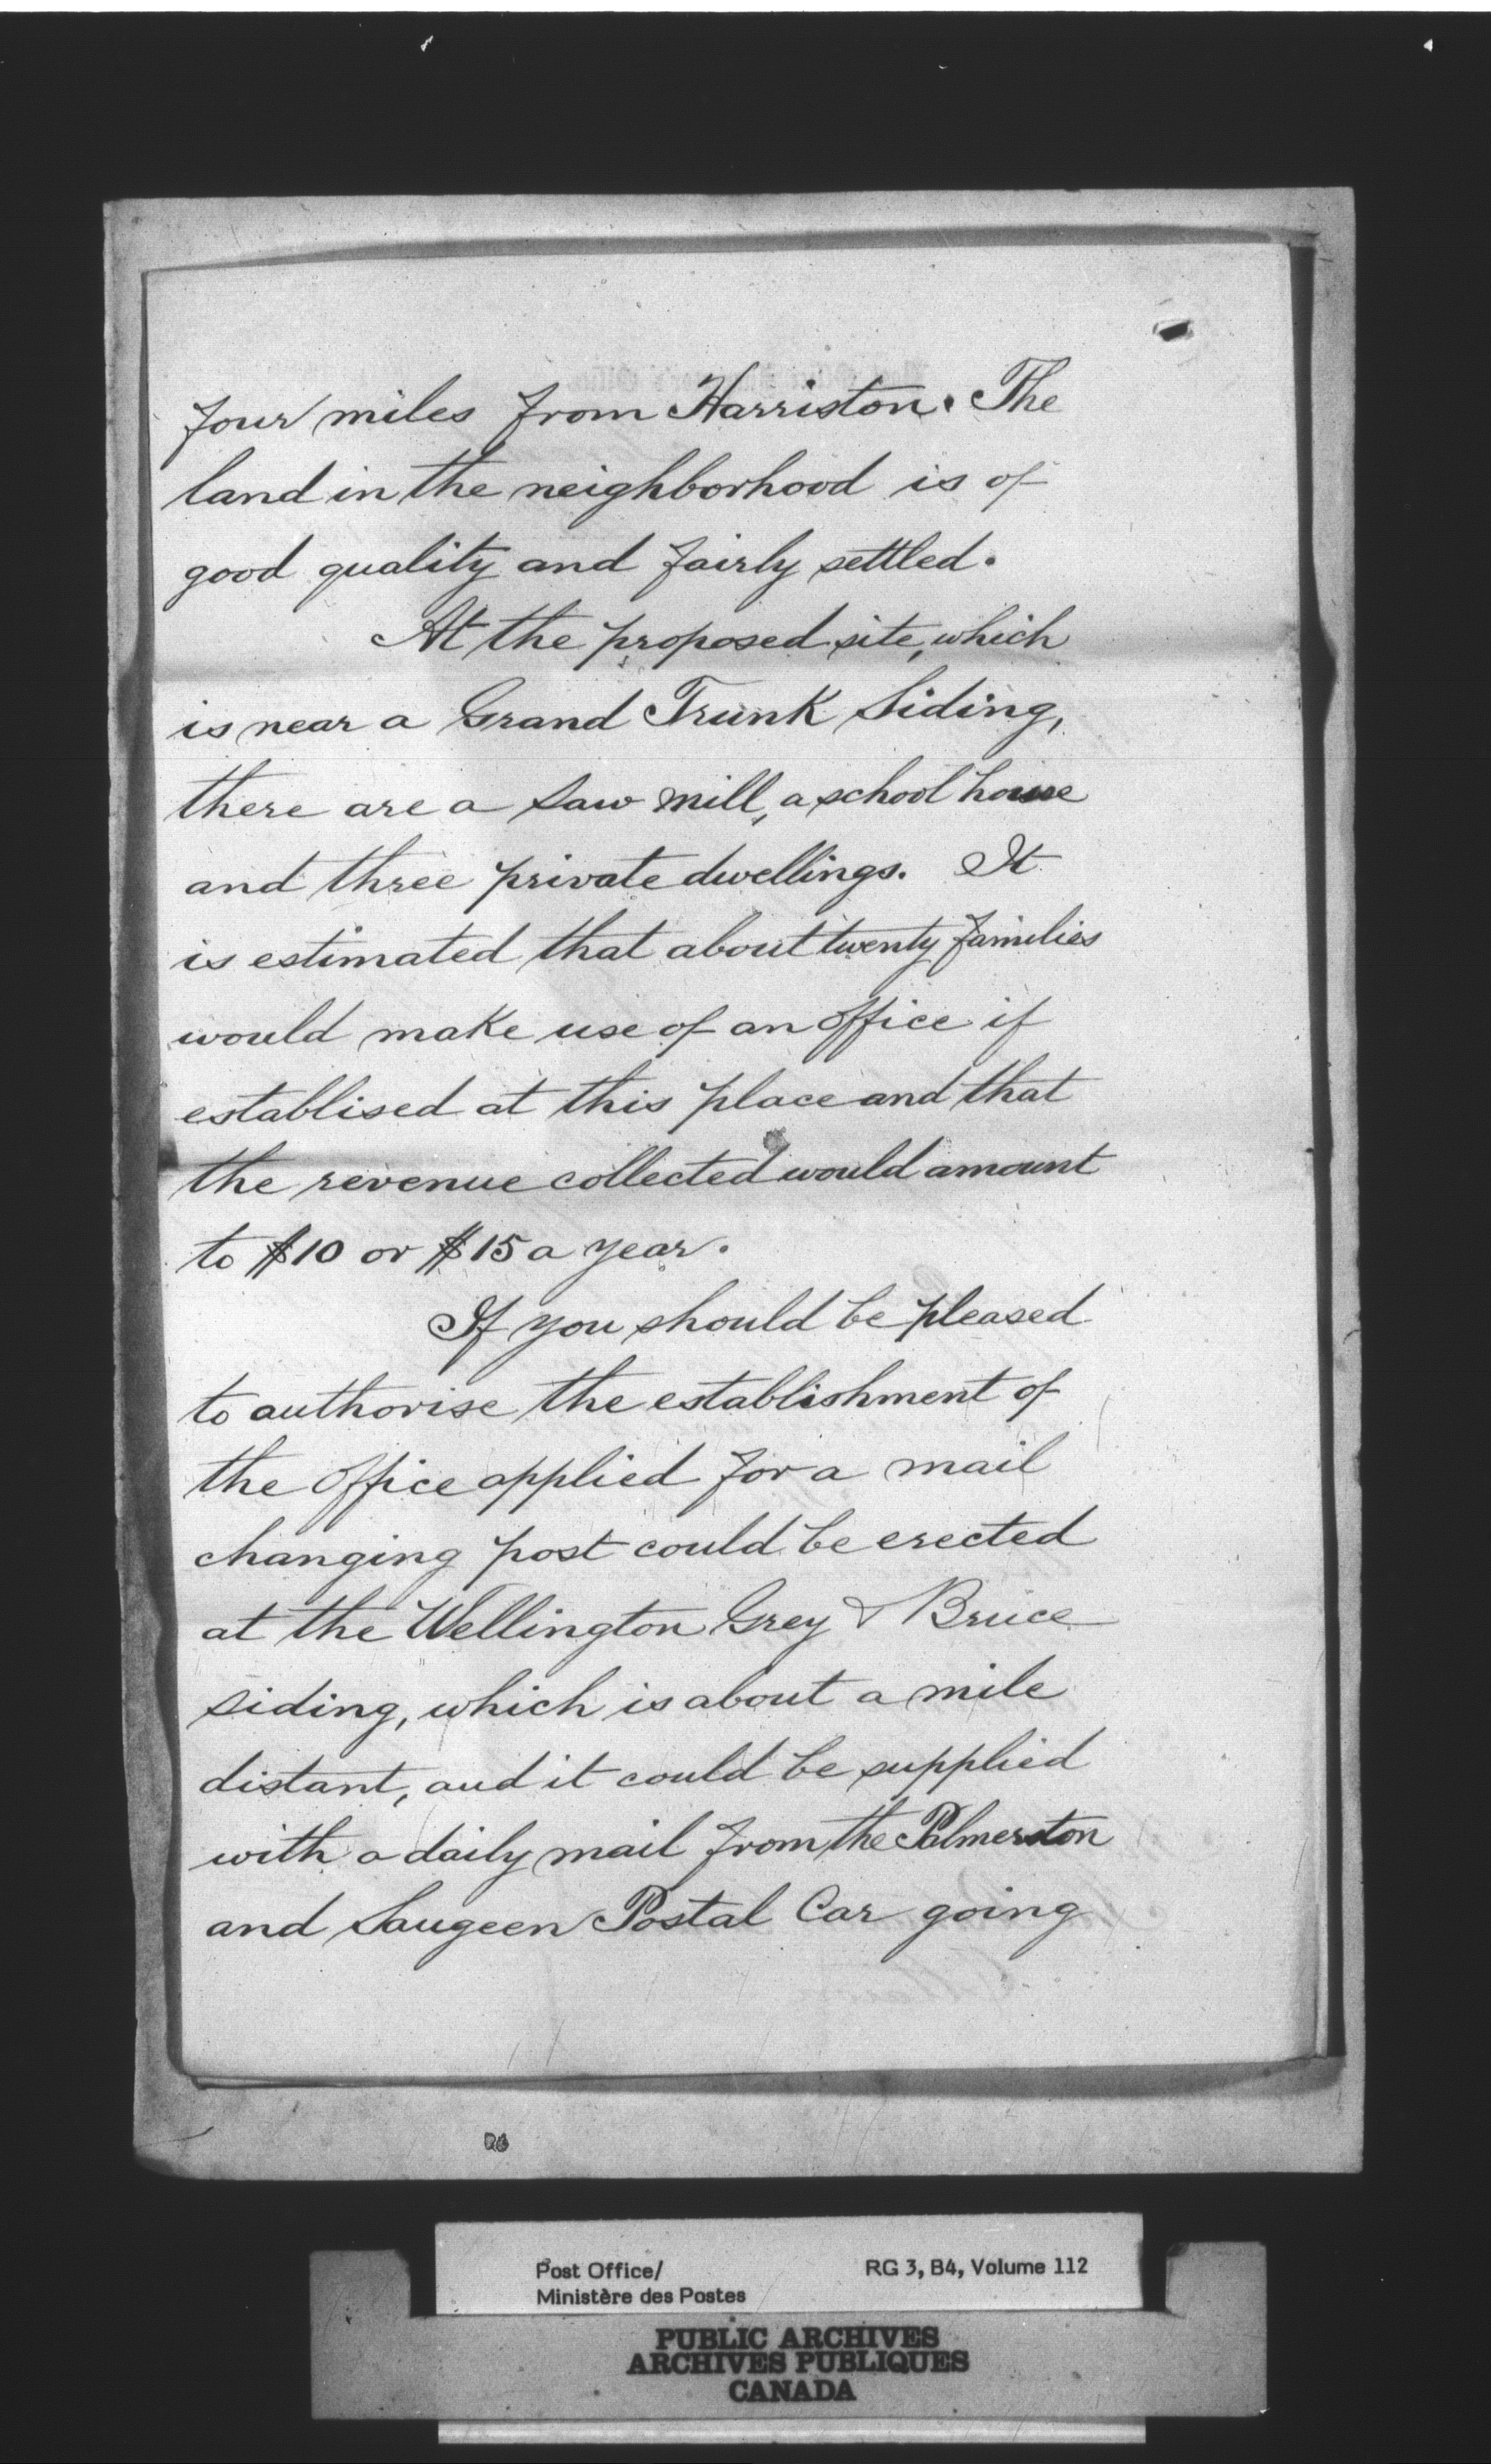 four miles from Harriston. The
land in the neighborhood is of
good quality and fairly settled.
At the proposed site, which
is near a Grand Trunk Siding,
there are a Saw Mill, a school house
and three private dwellings. It
is estimated that about twenty families
would make use of an Office if
establised at this place and that
the revenue collected would amount
to $10 or $15 a year.
If you should be pleased
to authorise the establishment of
the Office applied for a mail
changing post could be erected
at the Wellington Grey & Bruce
siding, which is about a mile
distant, and it could be supplied
with a daily mail from the Palmerston
and Saugeen Postal Car going
Post Office/
Ministère des Postes
RG 3, B4, Volume 112
PUBLIC ARCHIVES
ARCHIVES PUBLIQUES
CANADA